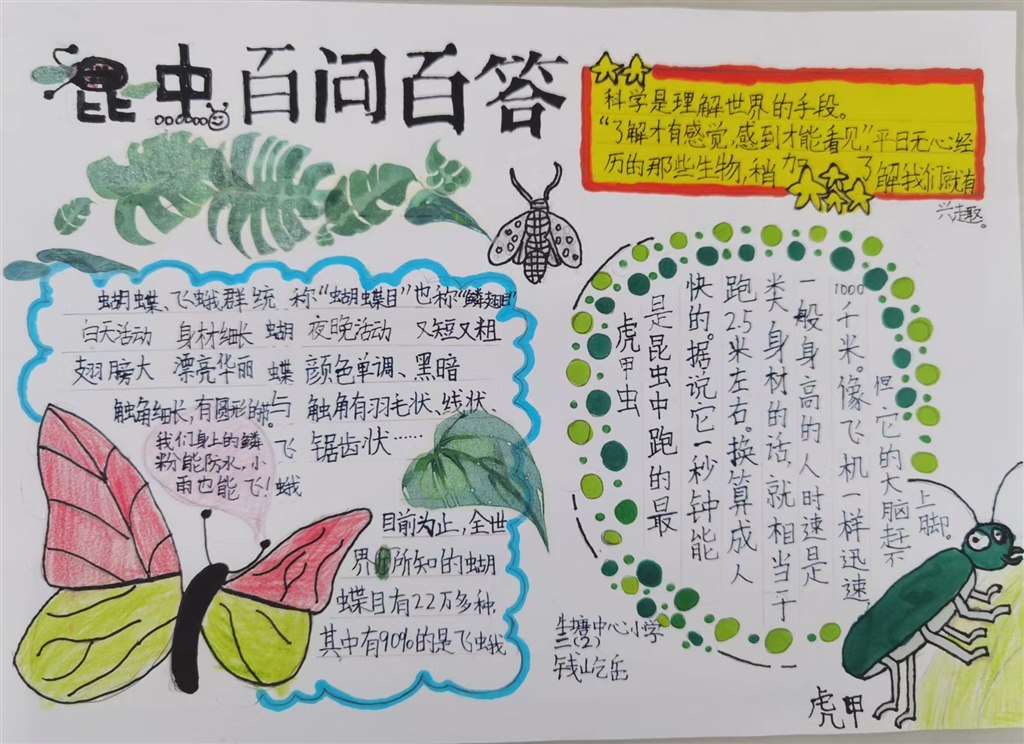 昆虫百问百答
科学是理解世界的手段。
“了解才有感觉,感到才能看见”,平日无心经
历的那些生物,稍加了解我们就有
兴趣。
蝴蝶、飞蛾群统称“蝴蝶目”也称“鳞翅目”
白天活动 身材细长 蝴 夜晚活动 又短又粗
翅膀大 漂亮华丽 蝶 颜色单调、黑暗
触角细长,有圆形的 与 触角有羽毛状、线状、
飞 锯齿状……
蛾
我们身上的鳞
粉能防水,小
雨也能飞!
目前为止,全世
界所知的蝴
蝶目有22万多种
其中有90%的是飞蛾
虎甲虫
是昆虫中跑的最
快的。据说它一秒钟能
跑2.5米左右。换算成人
类身材的话,就相当于
一般身高的人时速是
1000千米。像飞机一样迅速,
但它的大脑赶不
上脚。
中心小学
三(2)
虎甲